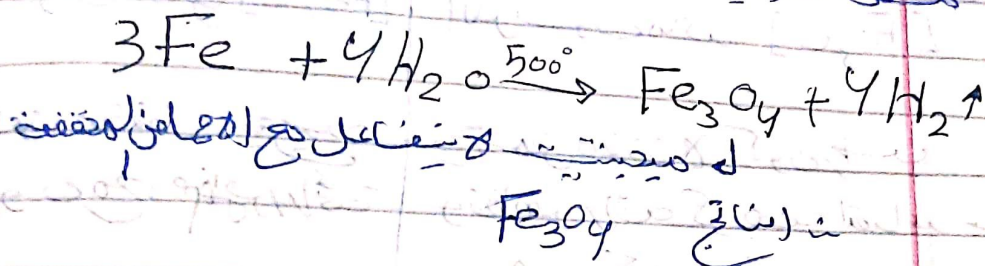 3Fe + 4H₂O 500° → Fe₃O₄ + 4H₂ ↑
مجنتيت لا يتفاعل مع الاحماض المخففة
Fe₃O₄